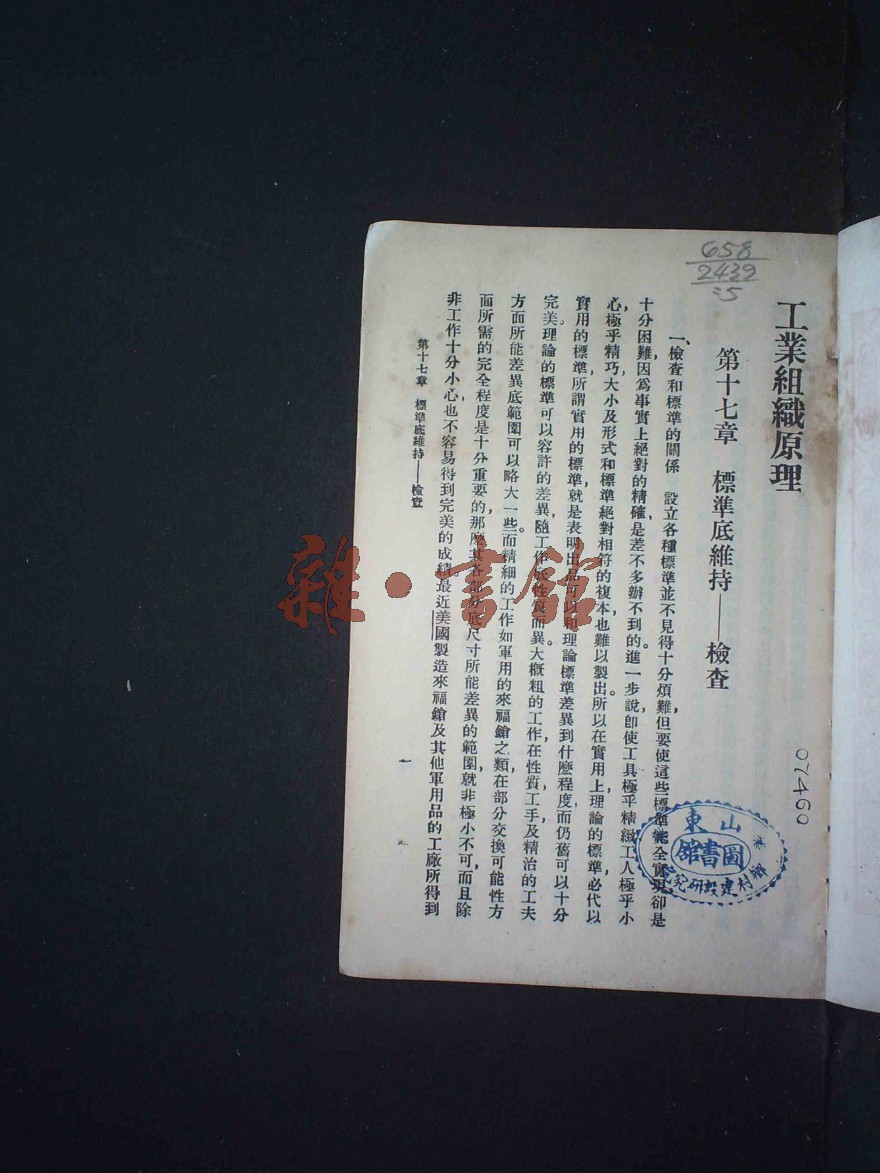 工業組織原理
第十七章　標準底維持——檢查
一、檢查和標準的關係　設立各種標準並不見得十分煩難，但要使這些標準能全實現，卻是
十分困難，因爲事實上絕對的精確是差不多辦不到的。進一步說，即使工具極乎精緻，工人極乎小
心，極乎精巧，大小及形式和標準絕對相符的複本也難以製出。所以在實用上理論的標準必代以
實用的標準，所謂實用的標準，就是表明出品可以和理論標準差異到什麽程度，而仍舊可以十分
完美。理論的標準可以容許的差異，隨工作底性質而異。大概粗的工作在性質工手及精治的工夫
方面所能差異底範圍可以略大一些。而精細的工作如軍用的來福鎗之類，在部分交換可能性方
面所需的完全程度是十分重要的，那麽其各部分底尺寸所能差異的範圍，就非極小不可，而且除
非工作十分小心，也不容易得到完美的成績。最近美國製造來福鎗及其他軍用品的工廠所得到
第十七章　標準底維持——檢查
一
658
2439
:5
07460
山東
鄉村建設研究
圖書館
雜·書館